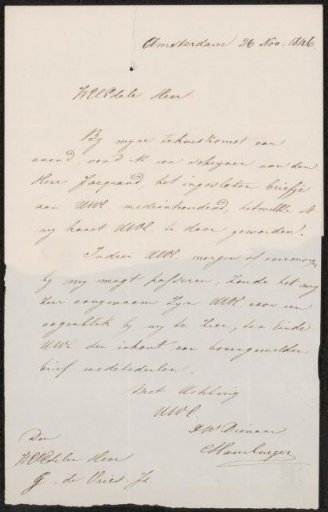 Amsterdam 26 Nov. 1846.
WelEdele Heer
By myne tehuiskomst van
avond, vond ik een schryven van den
Heer, het ingesloten briefje
aan UWE. medeinhoudend, hetwelke ik
my haast UWE. te doen geworden.
Indien UWE. morgen of overmorgen
by my mogt passeren, zoude het my
zeer aangenaam zyn UWE voor een
oogenblik by my te zien, ten einde
UWE den inhoud van bovengemelden
brief medetedeelen.
Met Achting
UWE.
DWDienaar
Hamburger
Den
WelEdelen Heer
G. de Vries Jz